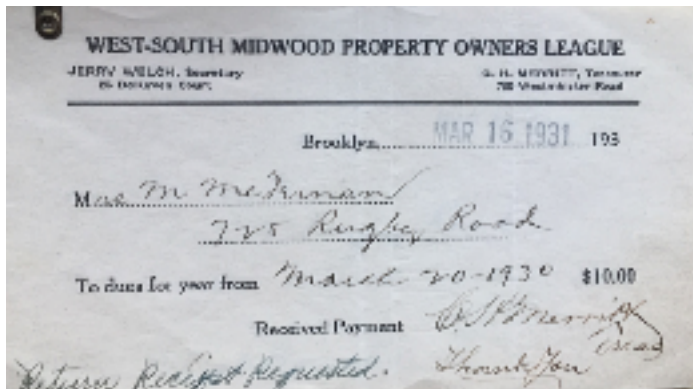 WEST-SOUTH MIDWOOD PROPERTY OWNERS LEAGUE
JERRY WELCH, Secretary
Court
MERRITT, Treasurer
Westminster Road
Brooklyn, MAR 16 1931 193
Mrs M McTernan
725 Rugby Road
To dues for year from March 20-1930 $10.00
Received Payment Merritt
Treas
Return Receipt Requested.
Thank You